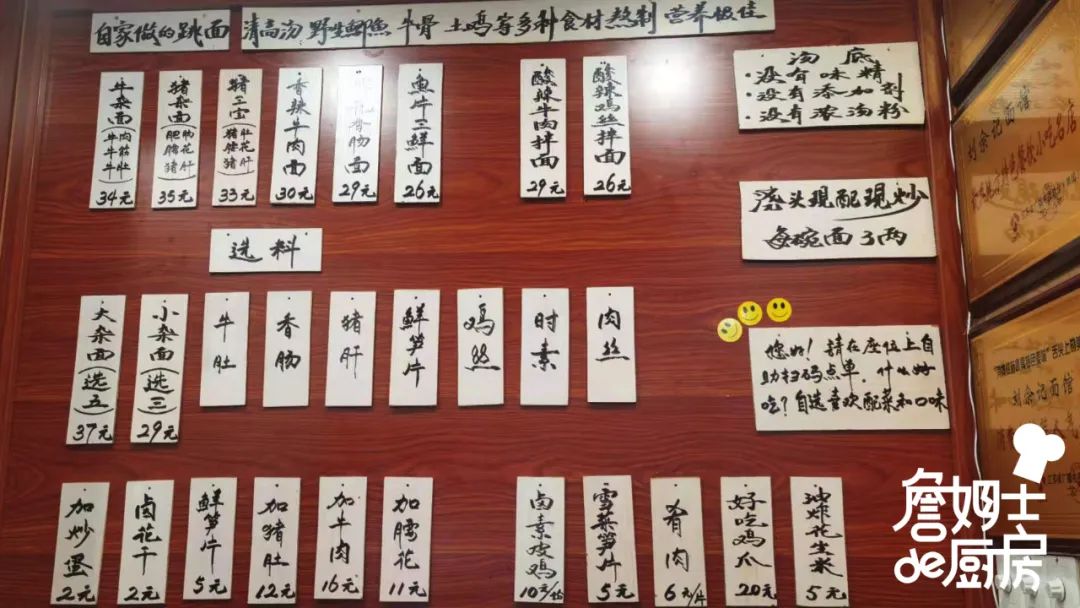 自家做的跳面
清高汤 野生鲫鱼 牛骨 土鸡等多种食材熬制 营养极佳
牛杂面(牛肉 牛筋 牛肚)
34元
猪杂面(肥肠 腰花 猪肝)
35元
猪三宝(猪肚 腰花 猪肝)
33元
香辣牛肉面
30元
肠面
29元
鱼片三鲜面
26元
酸辣牛肉拌面
29元
酸辣鸡丝拌面
26元
汤底
·没有味精
·没有添加剂
·没有浓汤粉
浇头现配现炒
每碗面3两
选料
大杂面(选五)
37元
小杂面(选三)
29元
牛肚
香肠
猪肝
鲜笋片
鸡丝
时素
肉丝
您好!请在座位上自
助扫码点单,什么好
吃?自选喜欢配菜和口味
加炒蛋
2元
卤花干
2元
鲜笋片
5元
加猪肚
12元
加牛肉
16元
加腰花
11元
卤素皮鸡
10元/份
雪菜笋片
5元
肴肉
6元/片
好吃鸡爪
20元
油炸花生米
5元
刘余记面馆
刘余记面馆
詹姆士
de厨房